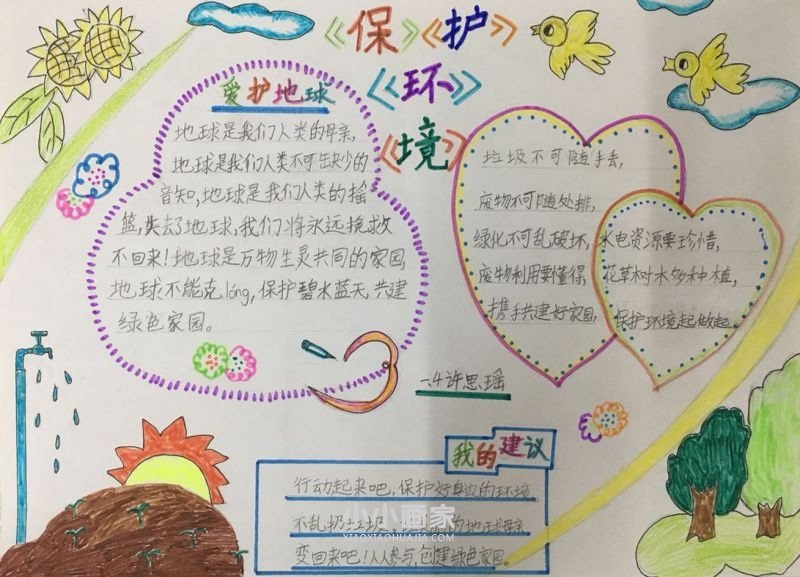 《保》《护》
《环》
《境》
爱护地球
地球是我们人类的母亲,
地球是我们人类不可缺少的
音知,地球是我们人类的摇
篮,失去了地球,我们将永远挽救
不回来!地球是万物生灵共同的家园,
地球不能克lóng,保护碧水蓝天,共建
绿色家园。
垃圾不可随手丢,
废物不可随处排,
绿化不可乱破坏,
废物利用要懂得,
携手共建好家园,
水电资源要珍惜,
花草树木多种植,
保护环境起做起。
一4许思瑶
我的建议
行动起来吧,保护好身边的环境
不乱扔垃圾,的地球母亲
变回来吧!人人参与,创建绿色家园。
小小画家
XIAOXIAOHUAJIA.COM